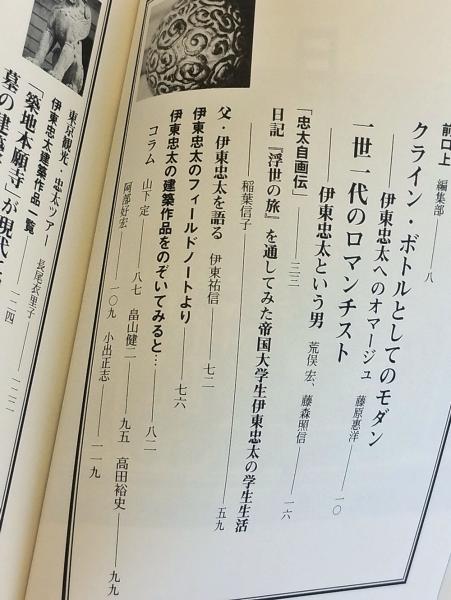 前口上 編集部――八
クライン・ボトルとしてのモダン
――伊東忠太へのオマージュ 藤原惠洋――一〇
一世一代のロマンチスト
――伊東忠太という男 荒俣 宏、藤森照信――一六
「忠太自画伝」――三三
日記『浮世の旅』を通してみた帝国大学生伊東忠太の学生生活
稲葉信子――五九
父・伊東忠太を語る 伊東祐信――七二
伊東忠太のフィールドノートより――七六
伊東忠太の建築作品をのぞいてみると…――八二
コラム 山下 定――八七 畠山健二――九五 高田裕史――九九
阿部好宏――一〇九 小出正志――一一九
東京観光・忠太ツアー
伊東忠太建築作品一覧 長尾衣里子――一二二
――一二四
「築地本願寺」が現代に
墓の建築